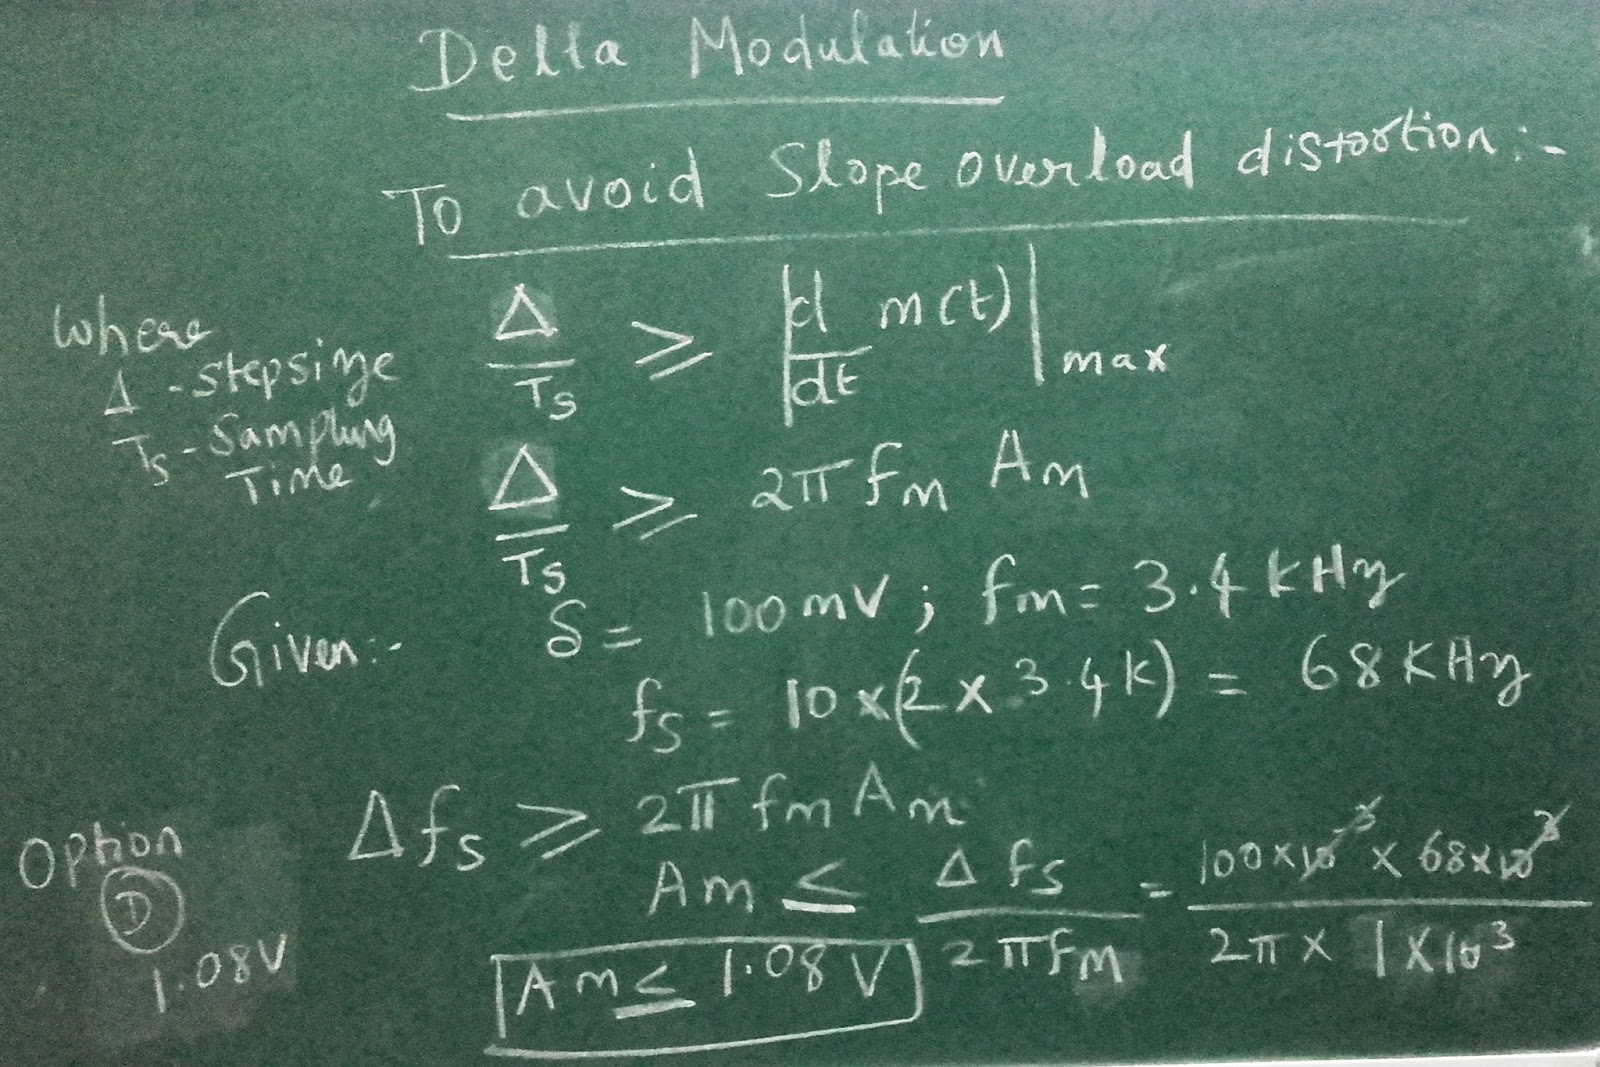 Delta Modulation
To avoid Slope overload distortion:-
Δ/Ts ≥ |d/dt m(t)|max
where
Δ - Stepsize
Ts - Sampling
Time
Δ/Ts ≥ 2π fm Am
Given:- δ = 100mV ; fm = 3.4 KHz
fs = 10 x (2 x 3.4K) = 68 KHz
Δfs ≥ 2π fm Am
Am ≤ Δ fs / 2πfm = 100x10⁻³ x 68x10³ / 2π x 1x10³
Am ≤ 1.08 V
Option
D
1.08V